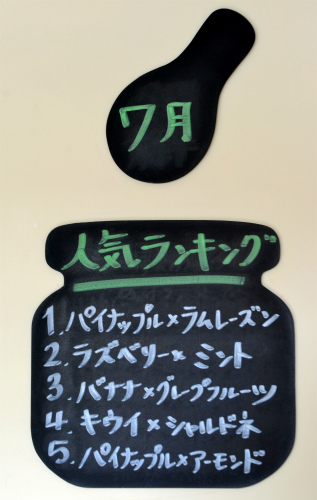 7月
人気ランキング
1.パイナップル×ラムレーズン
2.ラズベリー×ミント
3.バナナ×グレープフルーツ
4.キウイ×シャルドネ
5.パイナップル×アーモンド